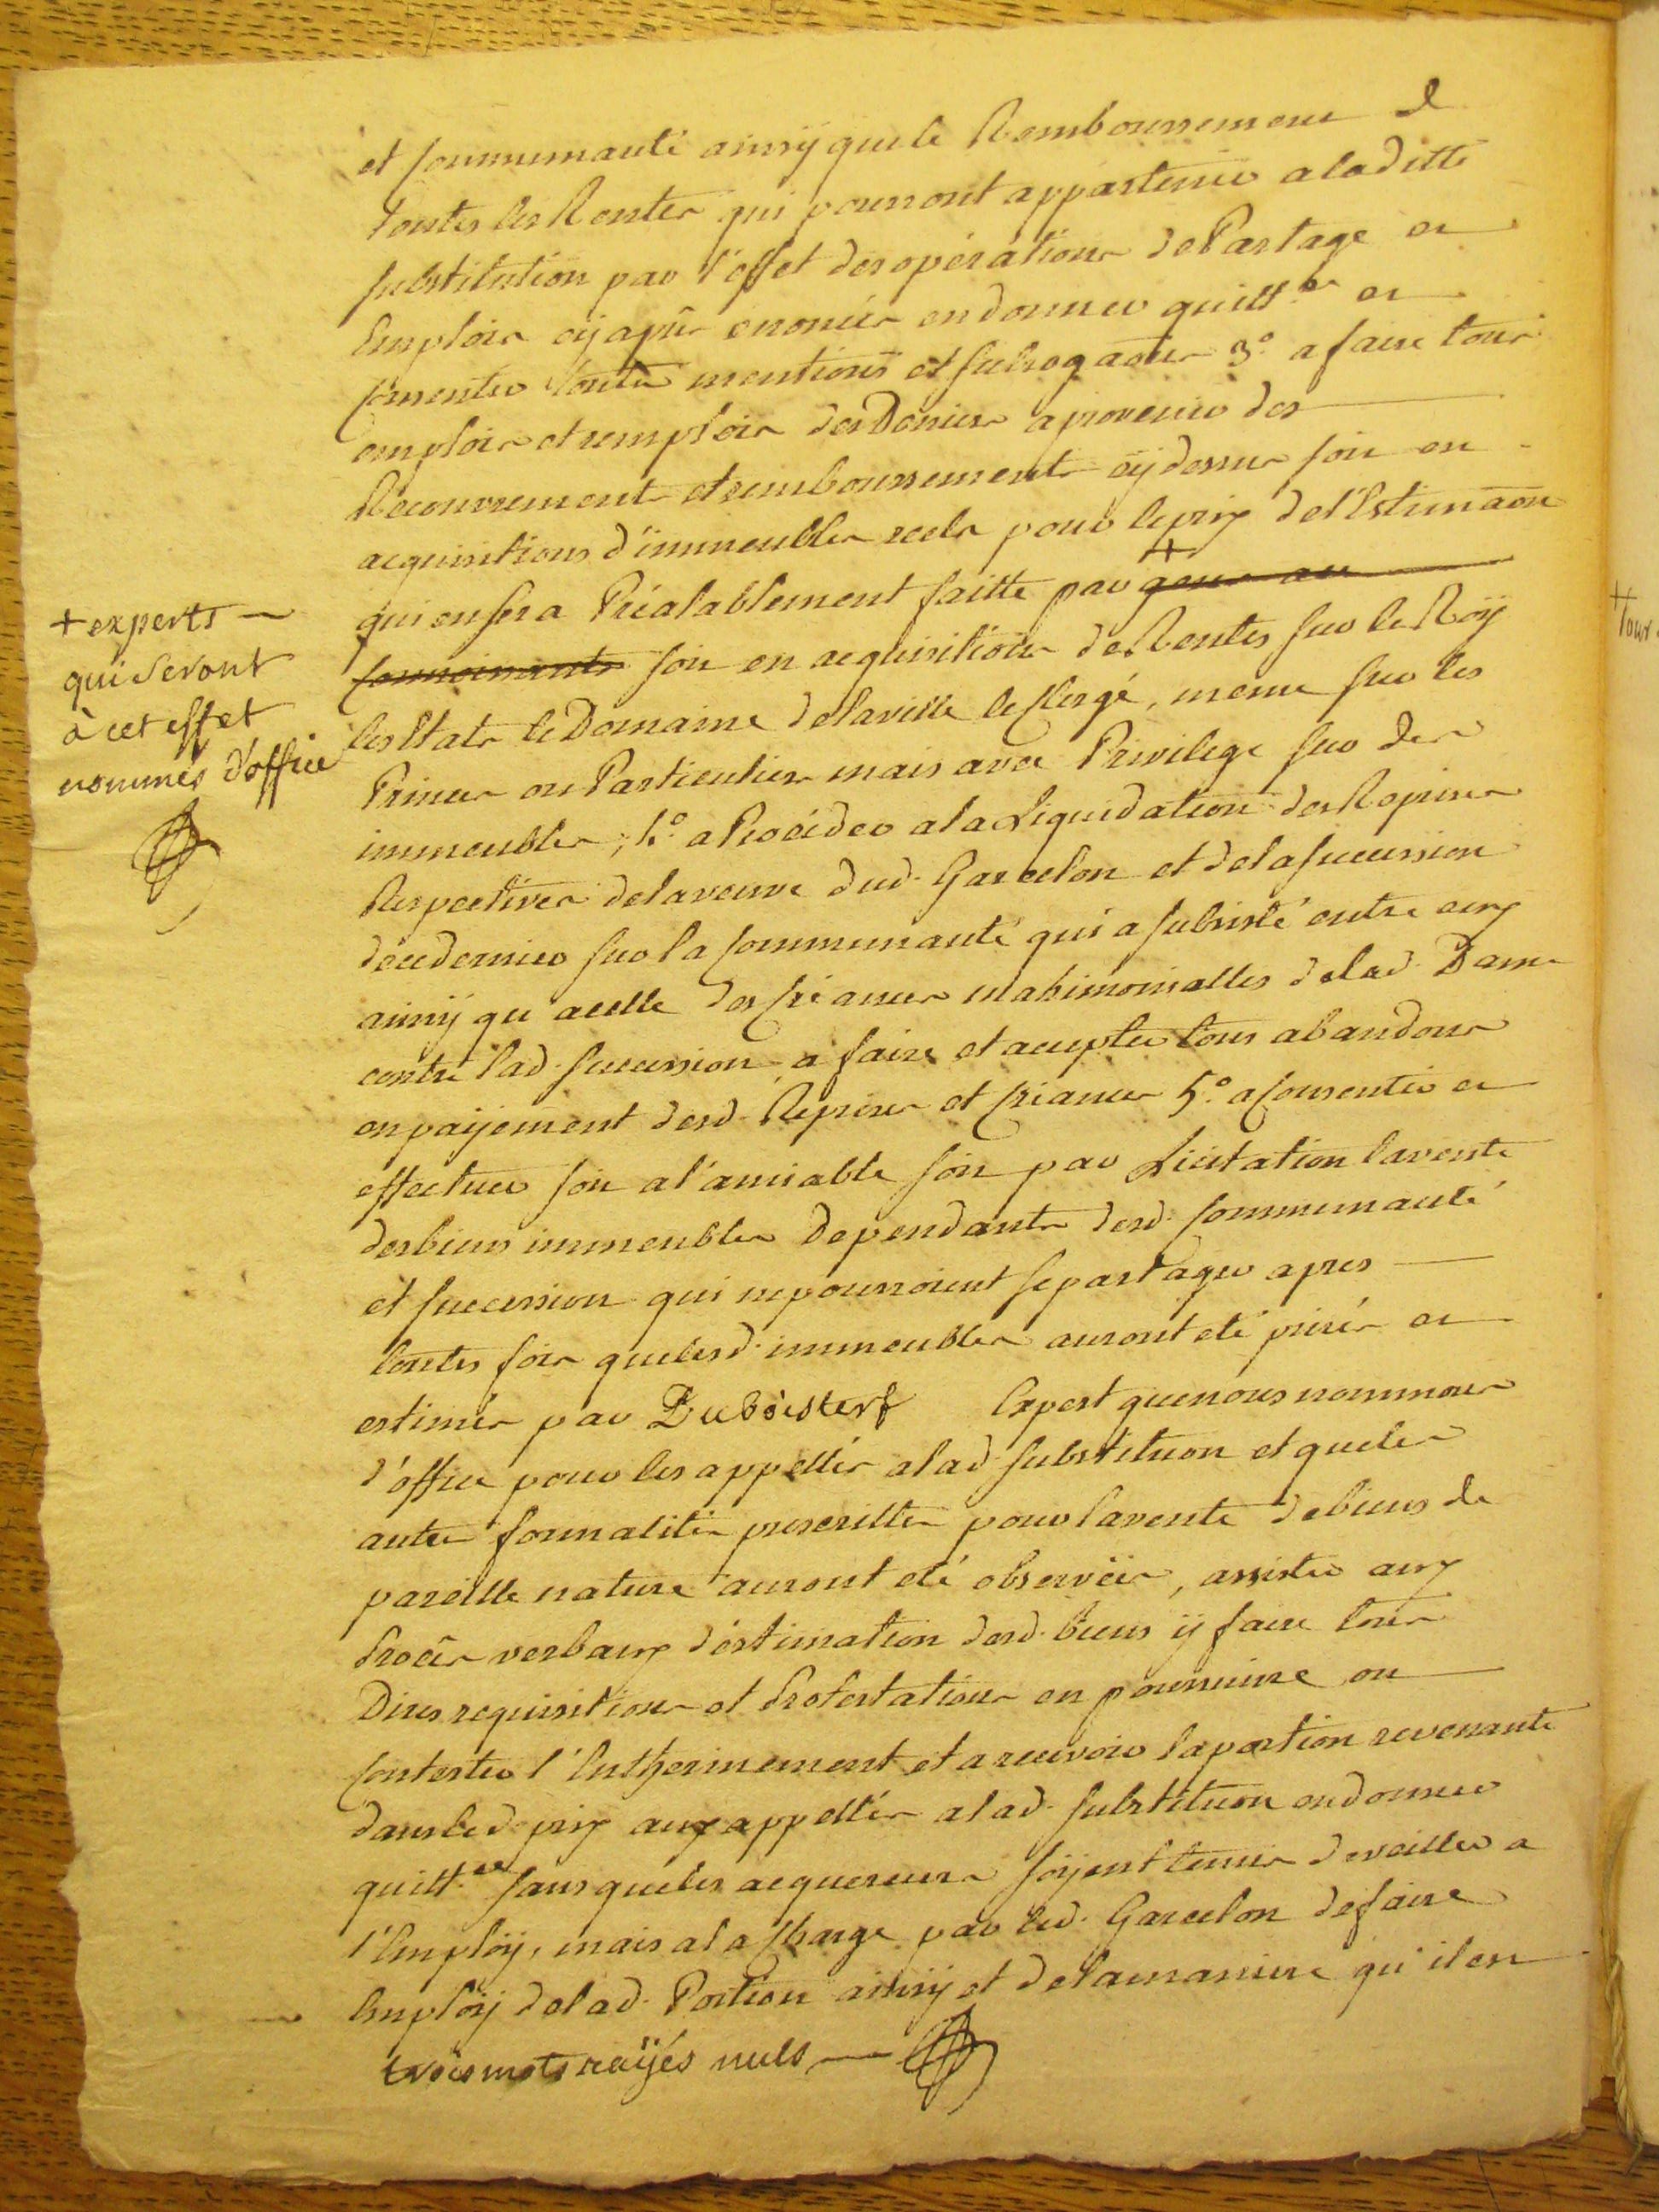 et Communauté ainsÿ que le Remboursement de
toutes les Rentes qui pourront appartenir a laditte
substitution par l'effet des opérations de Partage et
Emplois cÿ après enoncés en donner quitt.ces et
consentir toutes mentions et subrogaons 3.° a faire tous
emplois et remplois des Deniers a provenir des
Recouvrements et remboursements cÿ dessus soit en
acquisitions d'immeubles reels pour le prix de l'Estimaon
qui en sera Préalablement faitte par + gens au
+ experts
qui seront
à cet effet
nommés d'office
Connoissants soit en acquisitions de Rentes sur le Roÿ
les Etats le Domaine de la ville le Clergé, meme sur les
Princes ou Particuliers mais avec Privilege sur des
immeubles; 4.° a Procéder a la Liquidation des Reprises
Respectives de la veuve dud. Garcelon et de la succession
de ce dernier sur la Communauté qui a subsisté entre eux
ainsÿ qu'a celle des Créances matrimonialles de lad. Dame
contre lad. succession a faire et accepter tous abandons
en paÿement desd. Reprises et Créances 5.° a Consentir et
effectuer soit a l'amiable soit par Licitation la vente
des biens immeubles Dependants desd. Communauté
et succession qui ne pourroient se partager apres
toutes fois que lesd. immeubles auront eté prisés et
estimés par Duboisterf Expert que nous nommons
d'office pour les appellés a lad. substituon et que les
autres formalités prescrittes pour la vente de biens de
pareille nature auront eté observées, assister aux
Procès verbaux d'estimation desd. biens ÿ faire tous
Dires requisitions et Protestations en poursuivre ou
Contester l'Entherinement et a recevoir la portion revenante
dans led. prix aux appellés a lad. substituon en donner
quitt.ces sans que les acquereurs soÿent tenus de veiller a
l'Emploÿ, mais a la Charge par led. Garcelon de faire
Emploÿ de lad. Portion ainsÿ et de la maniere qu'il est
trois mots raÿés nuls